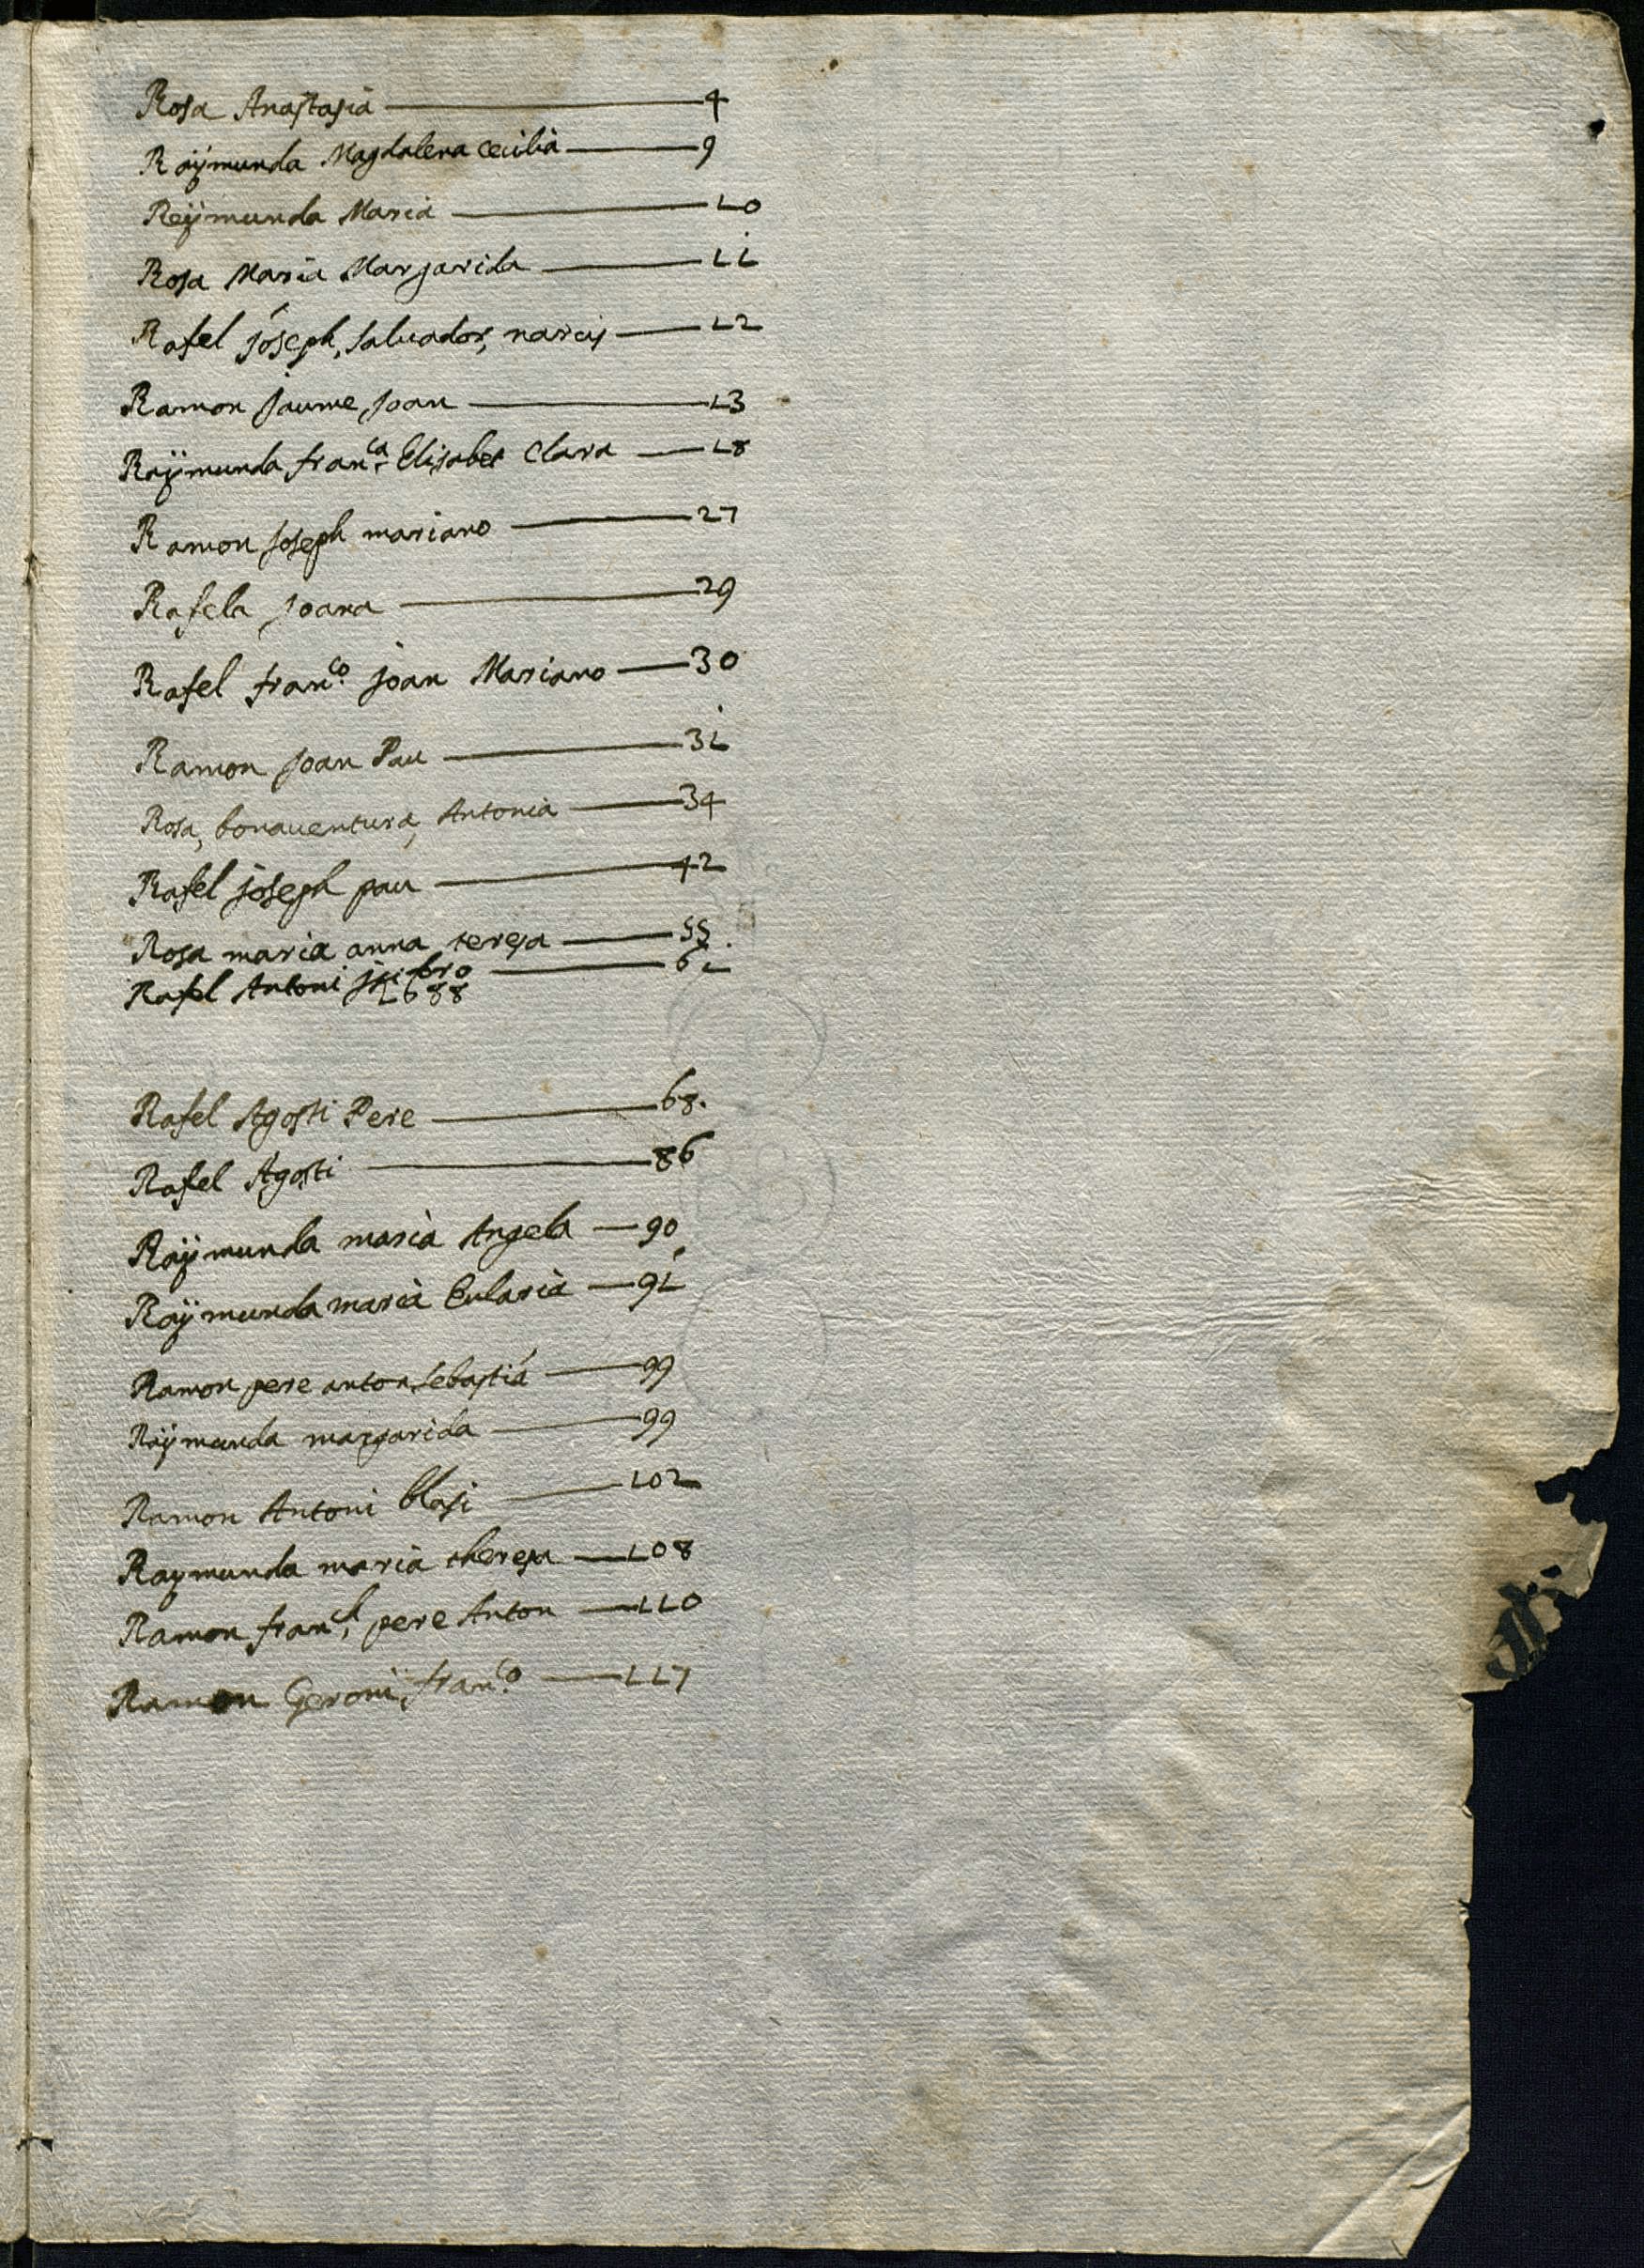 Rosa Anastasia 4
Raÿmunda Magdalena Cecilia 9
Reÿmunda Maria 10
Rosa Maria Margarida 11
Rafel Joseph, Saluador, narcis 12
Ramon Jaume Joan 13
Raÿmunda franca Elisabet Clara 18
Ramon Joseph mariano 27
Rafela Joana 29
Rafel franco Joan Mariano 30
Ramon Joan Pau 31
Rosa, bonauentura, Antonia 34
Rafel Joseph pau 42
Rosa maria anna teresa 55
Rafel Antoni 61
1688
Rafel Agosti Pere 68.
Rafel Agosti 86
Raÿmunda maria Angela 90
Raÿmunda maria Eularia 91
Ramon pere anton Sebastiá 99
Raÿmunda margarida 99
Ramon Antoni Blasi 102
Raymunda maria theresa 108
Ramon franch, pere Anton 110
Ramon Geroni, franco 117